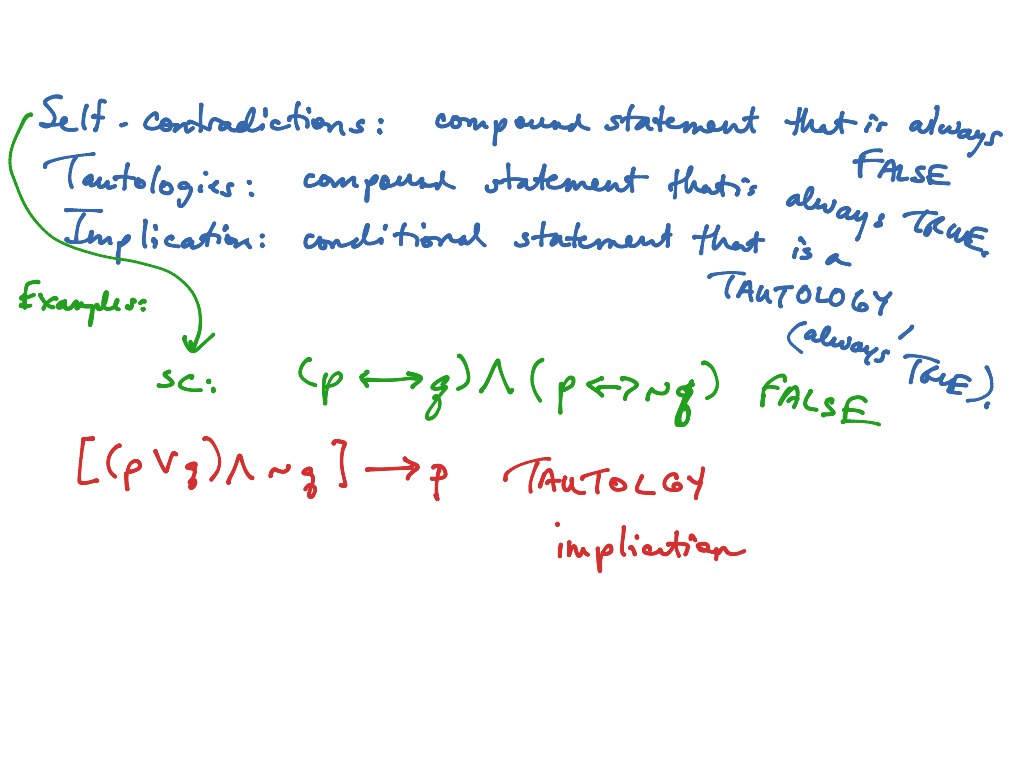 Self-contradictions: compound statement that is always FALSE
Tautologies: compound statement that is always TRUE.
Implication: conditional statement that is a TAUTOLOGY (always TRUE).
Examples:
SC: (p ⟷ q) ∧ (p ↔ ~q) FALSE
[(p ∨ q) ∧ ~q] → p TAUTOLGY
implication